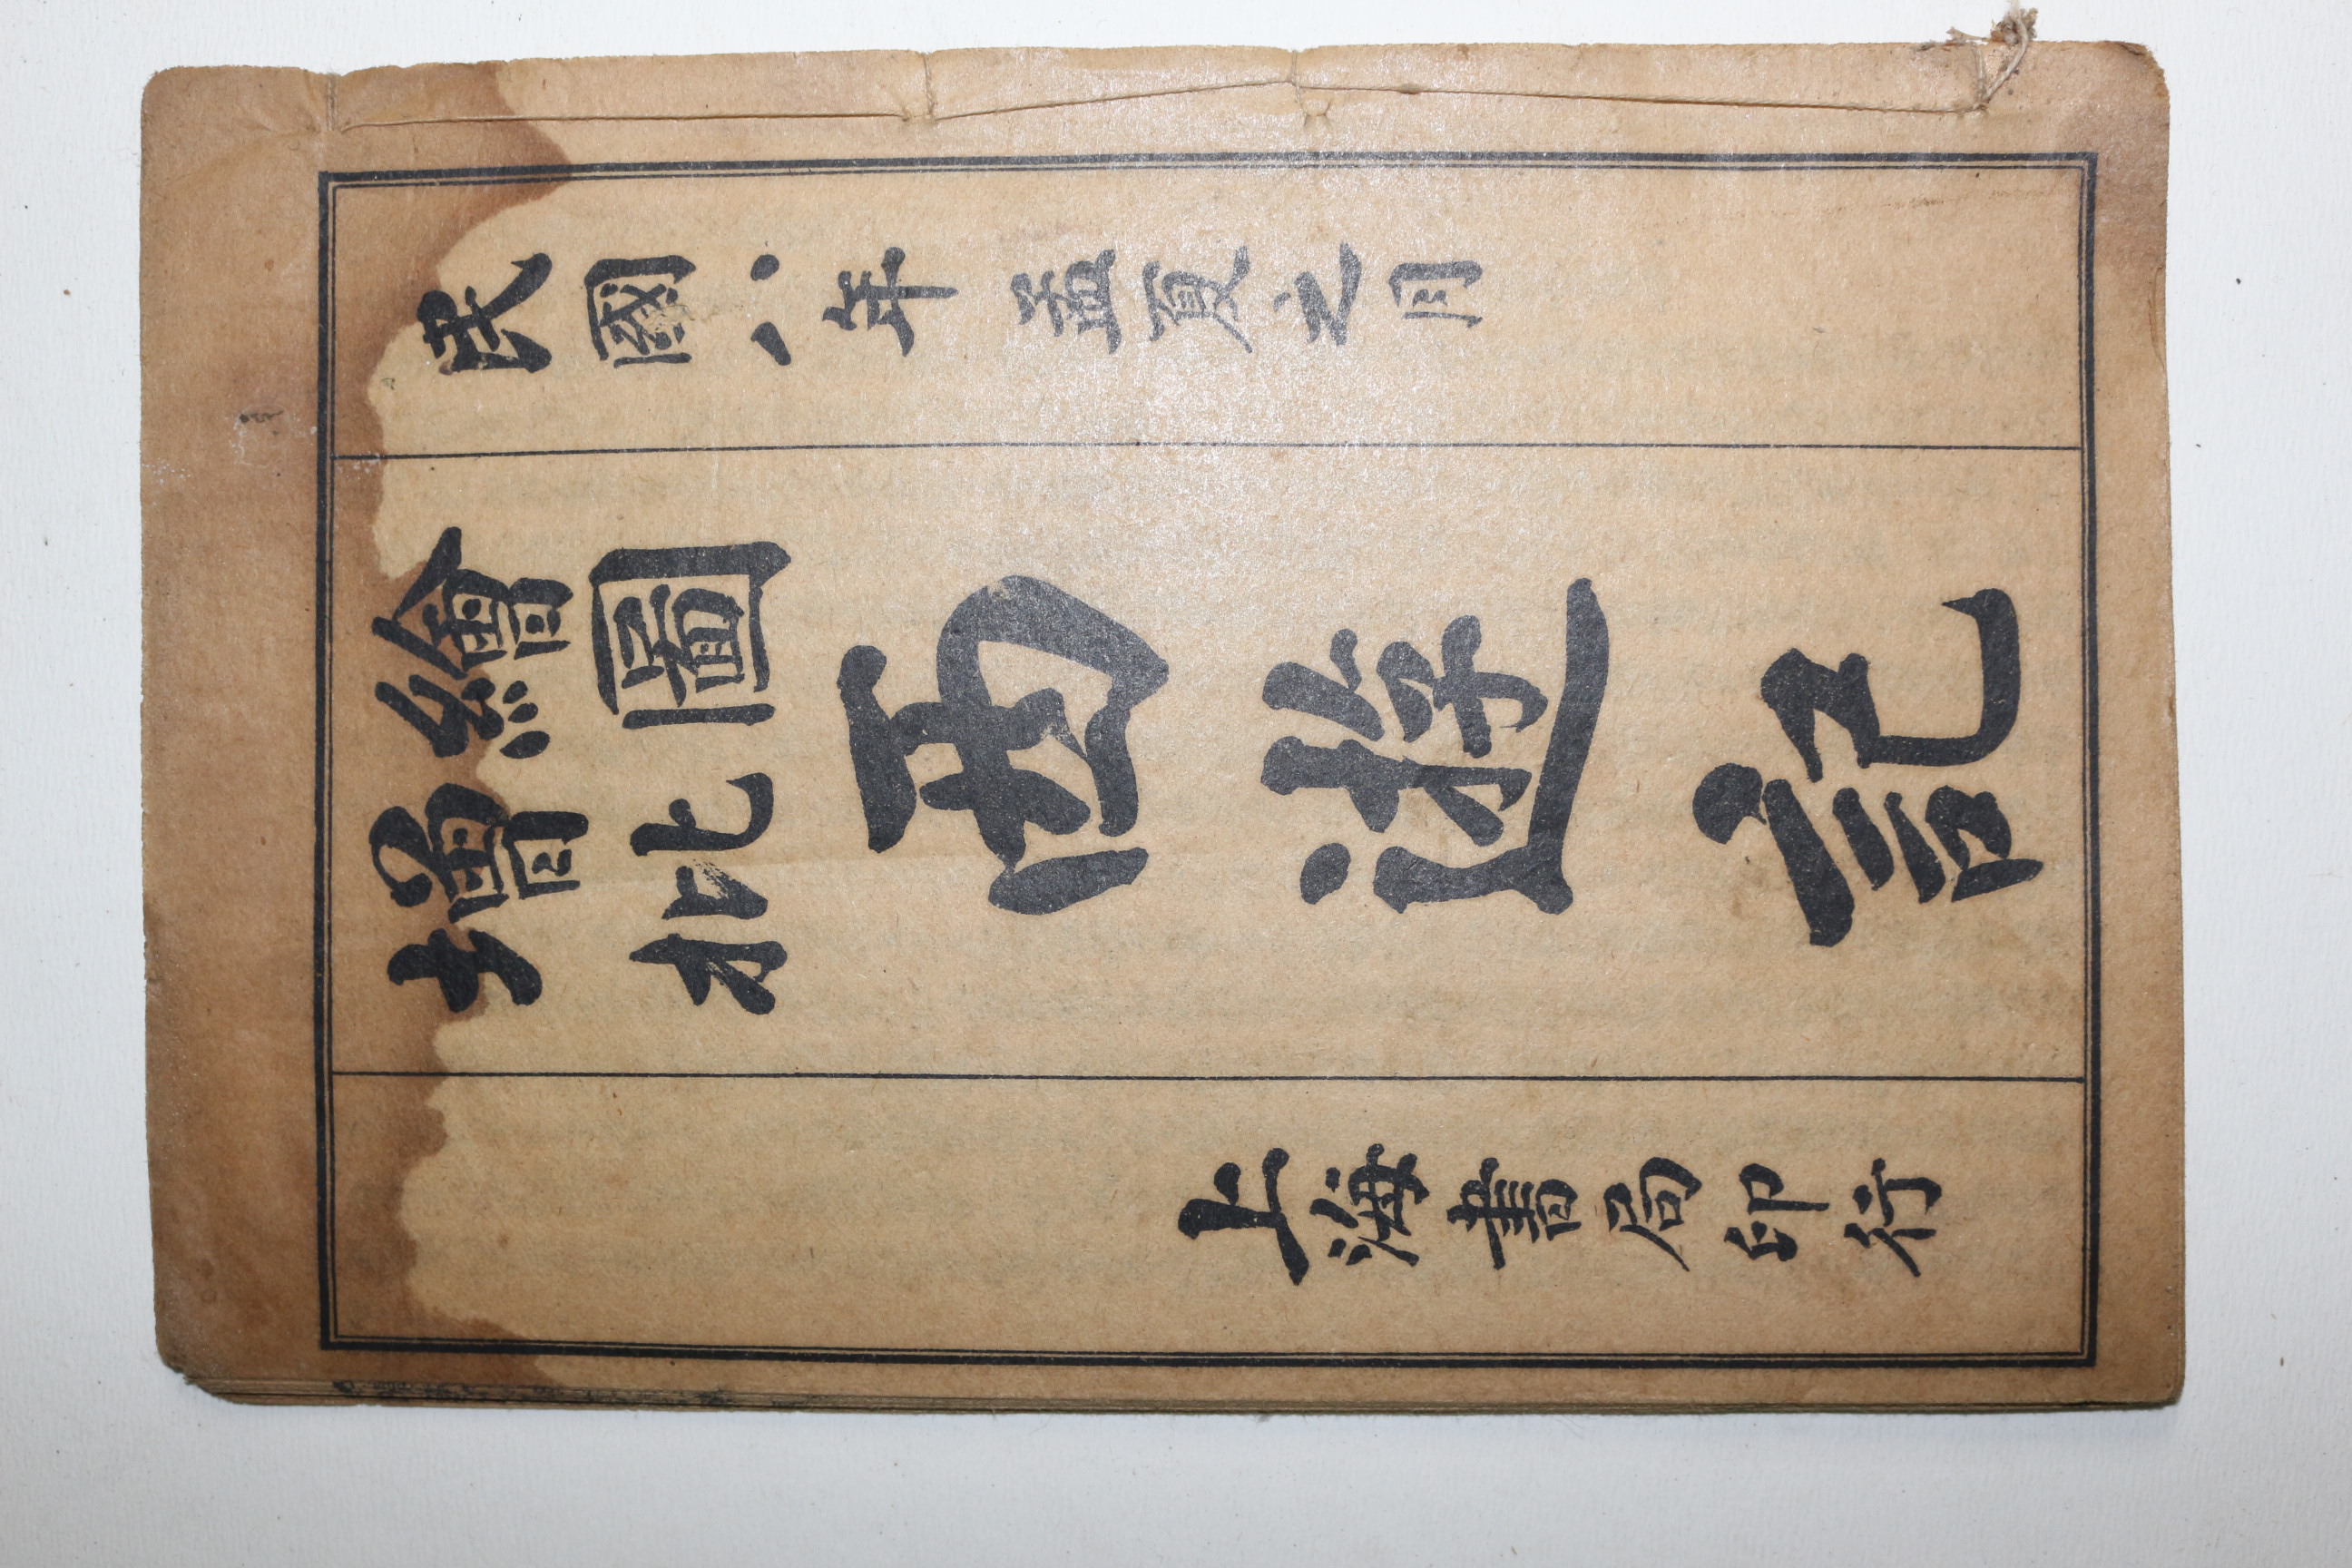 民國八年孟夏之月
繪圖
增批
西遊記
上海書局印行